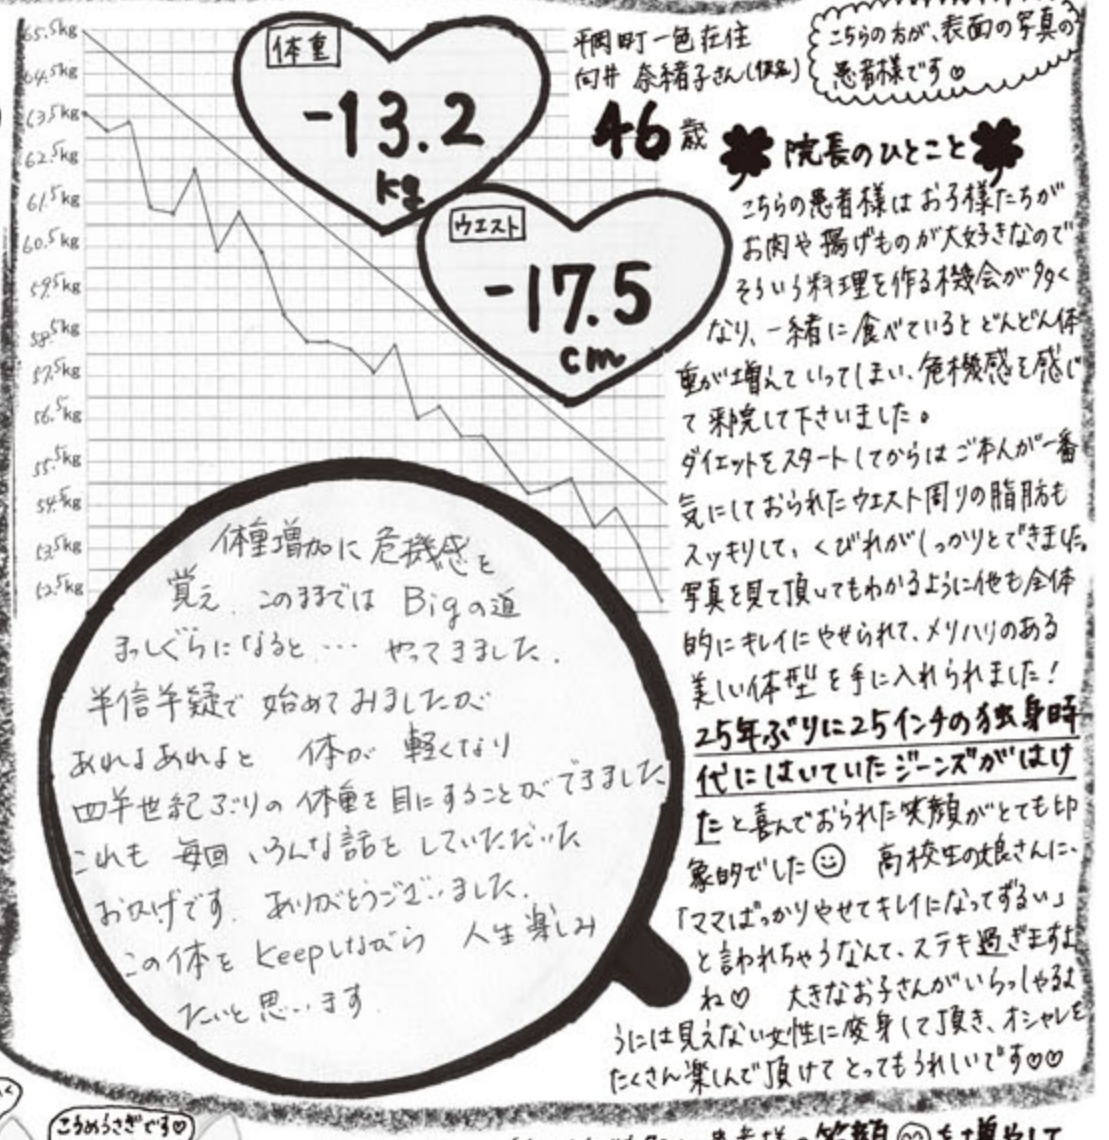 65.5kg
64.5kg
63.5kg
62.5kg
61.5kg
60.5kg
59.5kg
58.5kg
57.5kg
56.5kg
55.5kg
54.5kg
53.5kg
52.5kg
体重
-13.2
kg
ウエスト
-17.5
cm
平岡町一色在住
向井 奈緒子さん(仮名)
46歳
こちらの方が、表面の写真の
患者様です♡
院長のひとこと
こちらの患者様はお子様たちが
お肉や揚げものが大好きなので
そういう料理を作る機会が多く
なり、一緒に食べているとどんどん体
重が増えていってしまい、危機感を感じ
て来院して下さいました。
ダイエットをスタートしてからはご本人が一番
気にしておられたウエスト周りの脂肪も
スッキリして、くびれがしっかりとできました。
写真を見て頂いてもわかるように他も全体
的にキレイにやせられて、メリハリのある
美しい体型を手に入れられました!
25年ぶりに25インチの独身時
代にはいていたジーンズがはけ
たと喜んでおられた笑顔がとても印
象的でした☺ 高校生の娘さんに、
「ママばっかりやせてキレイになってずるい」
と言われちゃうなんて、ステキ過ぎますよ
ね♡ 大きなお子さんがいらっしゃるよ
うには見えない女性に変身して頂き、オシャレを
たくさん楽しんで頂けてとってもうれしいです♡♡
体重増加に危機感を
覚え このままでは Bigの道
まっしぐらになると… やってきました.
半信半疑で 始めてみましたが
あれよあれよと 体が 軽くなり
四半世紀ぶりの 体重を目にすることができました
これも 毎回 いろんな話をしていただいた
おかげです. ありがとうございました.
この体を Keepしながら 人生楽しみ
たいと思います
こうめうさぎです♡
患者様の笑顔☺を増やして